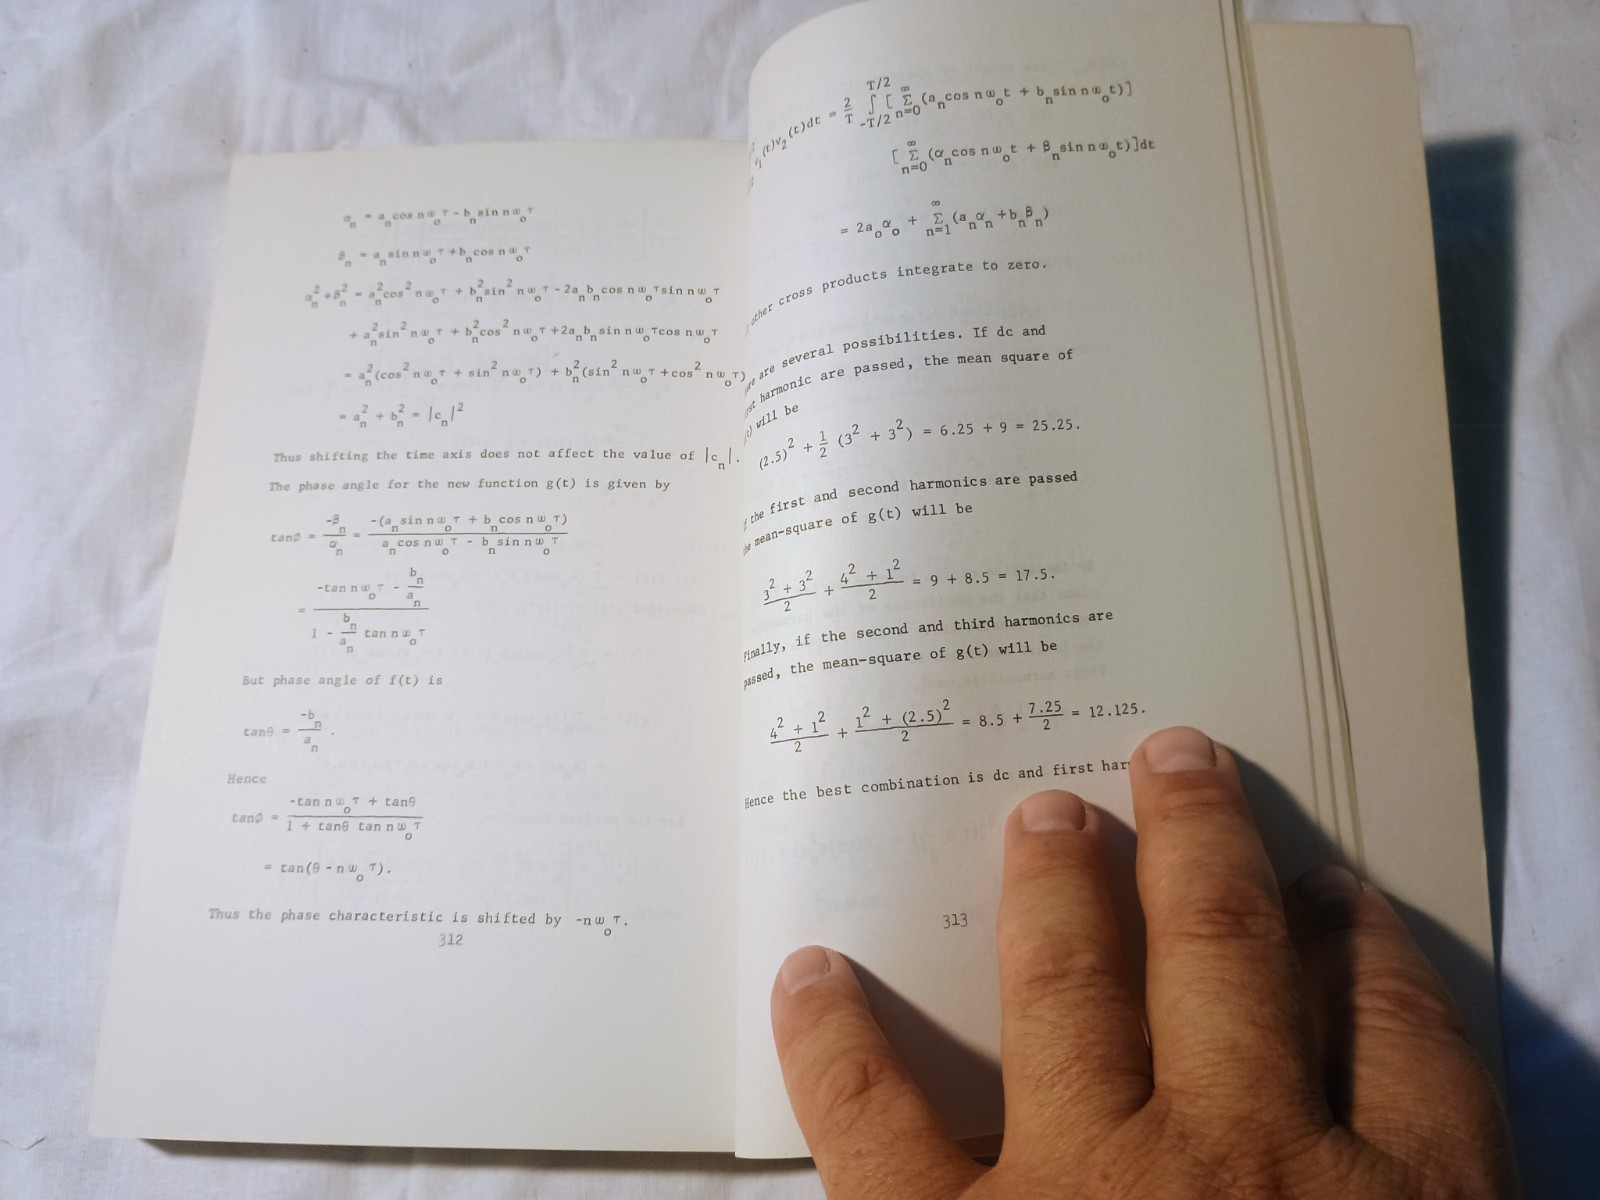 αn = an cos nω₀τ - bn sin nω₀τ
βn = an sin nω₀τ + bn cos nω₀τ
αn² + βn² = an² cos² nω₀τ + bn² sin² nω₀τ - 2an bn cos nω₀τ sin nω₀τ
+ an² sin² nω₀τ + bn² cos² nω₀τ + 2an bn sin nω₀τ cos nω₀τ
= an² (cos² nω₀τ + sin² nω₀τ) + bn² (sin² nω₀τ + cos² nω₀τ)
= an² + bn² = |cn|²
Thus shifting the time axis does not affect the value of |cn|.
The phase angle for the new function g(t) is given by
tanø = -βn/αn = -(an sin nω₀τ + bn cos nω₀τ)/(an cos nω₀τ - bn sin nω₀τ)
= (-tan nω₀τ - bn/an)/(1 - bn/an tan nω₀τ)
But phase angle of f(t) is
tanθ = -bn/an .
Hence
tanø = (-tan nω₀τ + tanθ)/(1 + tanθ tan nω₀τ)
= tan(θ - nω₀τ).
Thus the phase characteristic is shifted by -nω₀τ.
312
v₁(t)v₂(t)dt = 2/T ∫-T/2 T/2 [ Σ n=0 ∞ (an cos nω₀t + bn sin nω₀t)]
[ Σ n=0 ∞ (αn cos nω₀t + βn sin nω₀t)]dt
= 2a₀α₀ + Σ n=1 ∞ (an αn + bn βn)
other cross products integrate to zero.
are several possibilities. If dc and
harmonic are passed, the mean square of
will be
(2.5)² + 1/2 (3² + 3²) = 6.25 + 9 = 25.25.
the first and second harmonics are passed
mean-square of g(t) will be
(3² + 3²)/2 + (4² + 1²)/2 = 9 + 8.5 = 17.5.
Finally, if the second and third harmonics are
passed, the mean-square of g(t) will be
(4² + 1²)/2 + (1² + (2.5)²)/2 = 8.5 + 7.25/2 = 12.125.
Hence the best combination is dc and first har
313